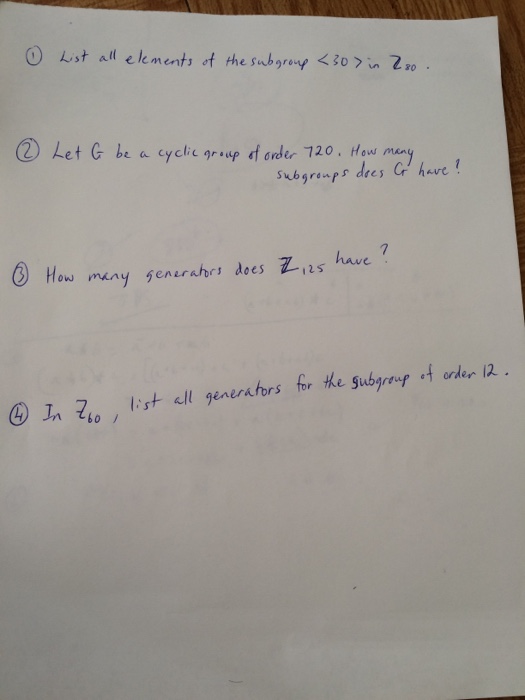 ① List all elements of the subgroup <30> in Z80.
② Let G be a cyclic group of order 720. How many
subgroups does G have?
③ How many generators does Z125 have?
④ In Z60, list all generators for the subgroup of order 12.